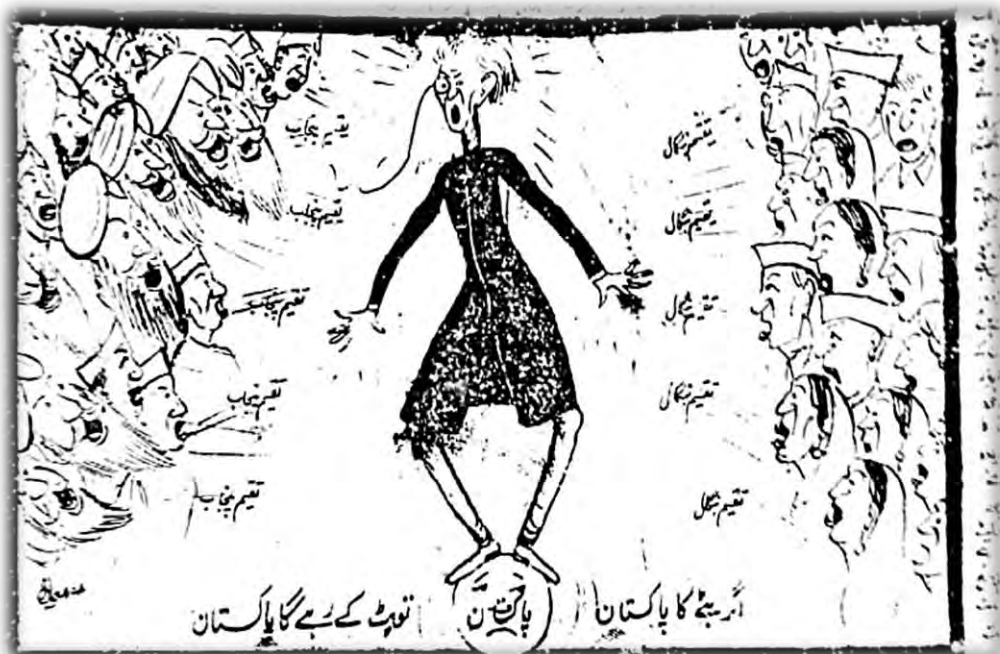 تقسیم پنجاب
تقسیم پنجاب
تقسیم پنجاب
تقسیم پنجاب
تقسیم پنجاب
تقسیم بنگال
تقسیم بنگال
تقسیم بنگال
تقسیم بنگال
تقسیم بنگال
اگر بٹے گا پاکستان
پاکستان
تو پٹ کے رہے گا پاکستان